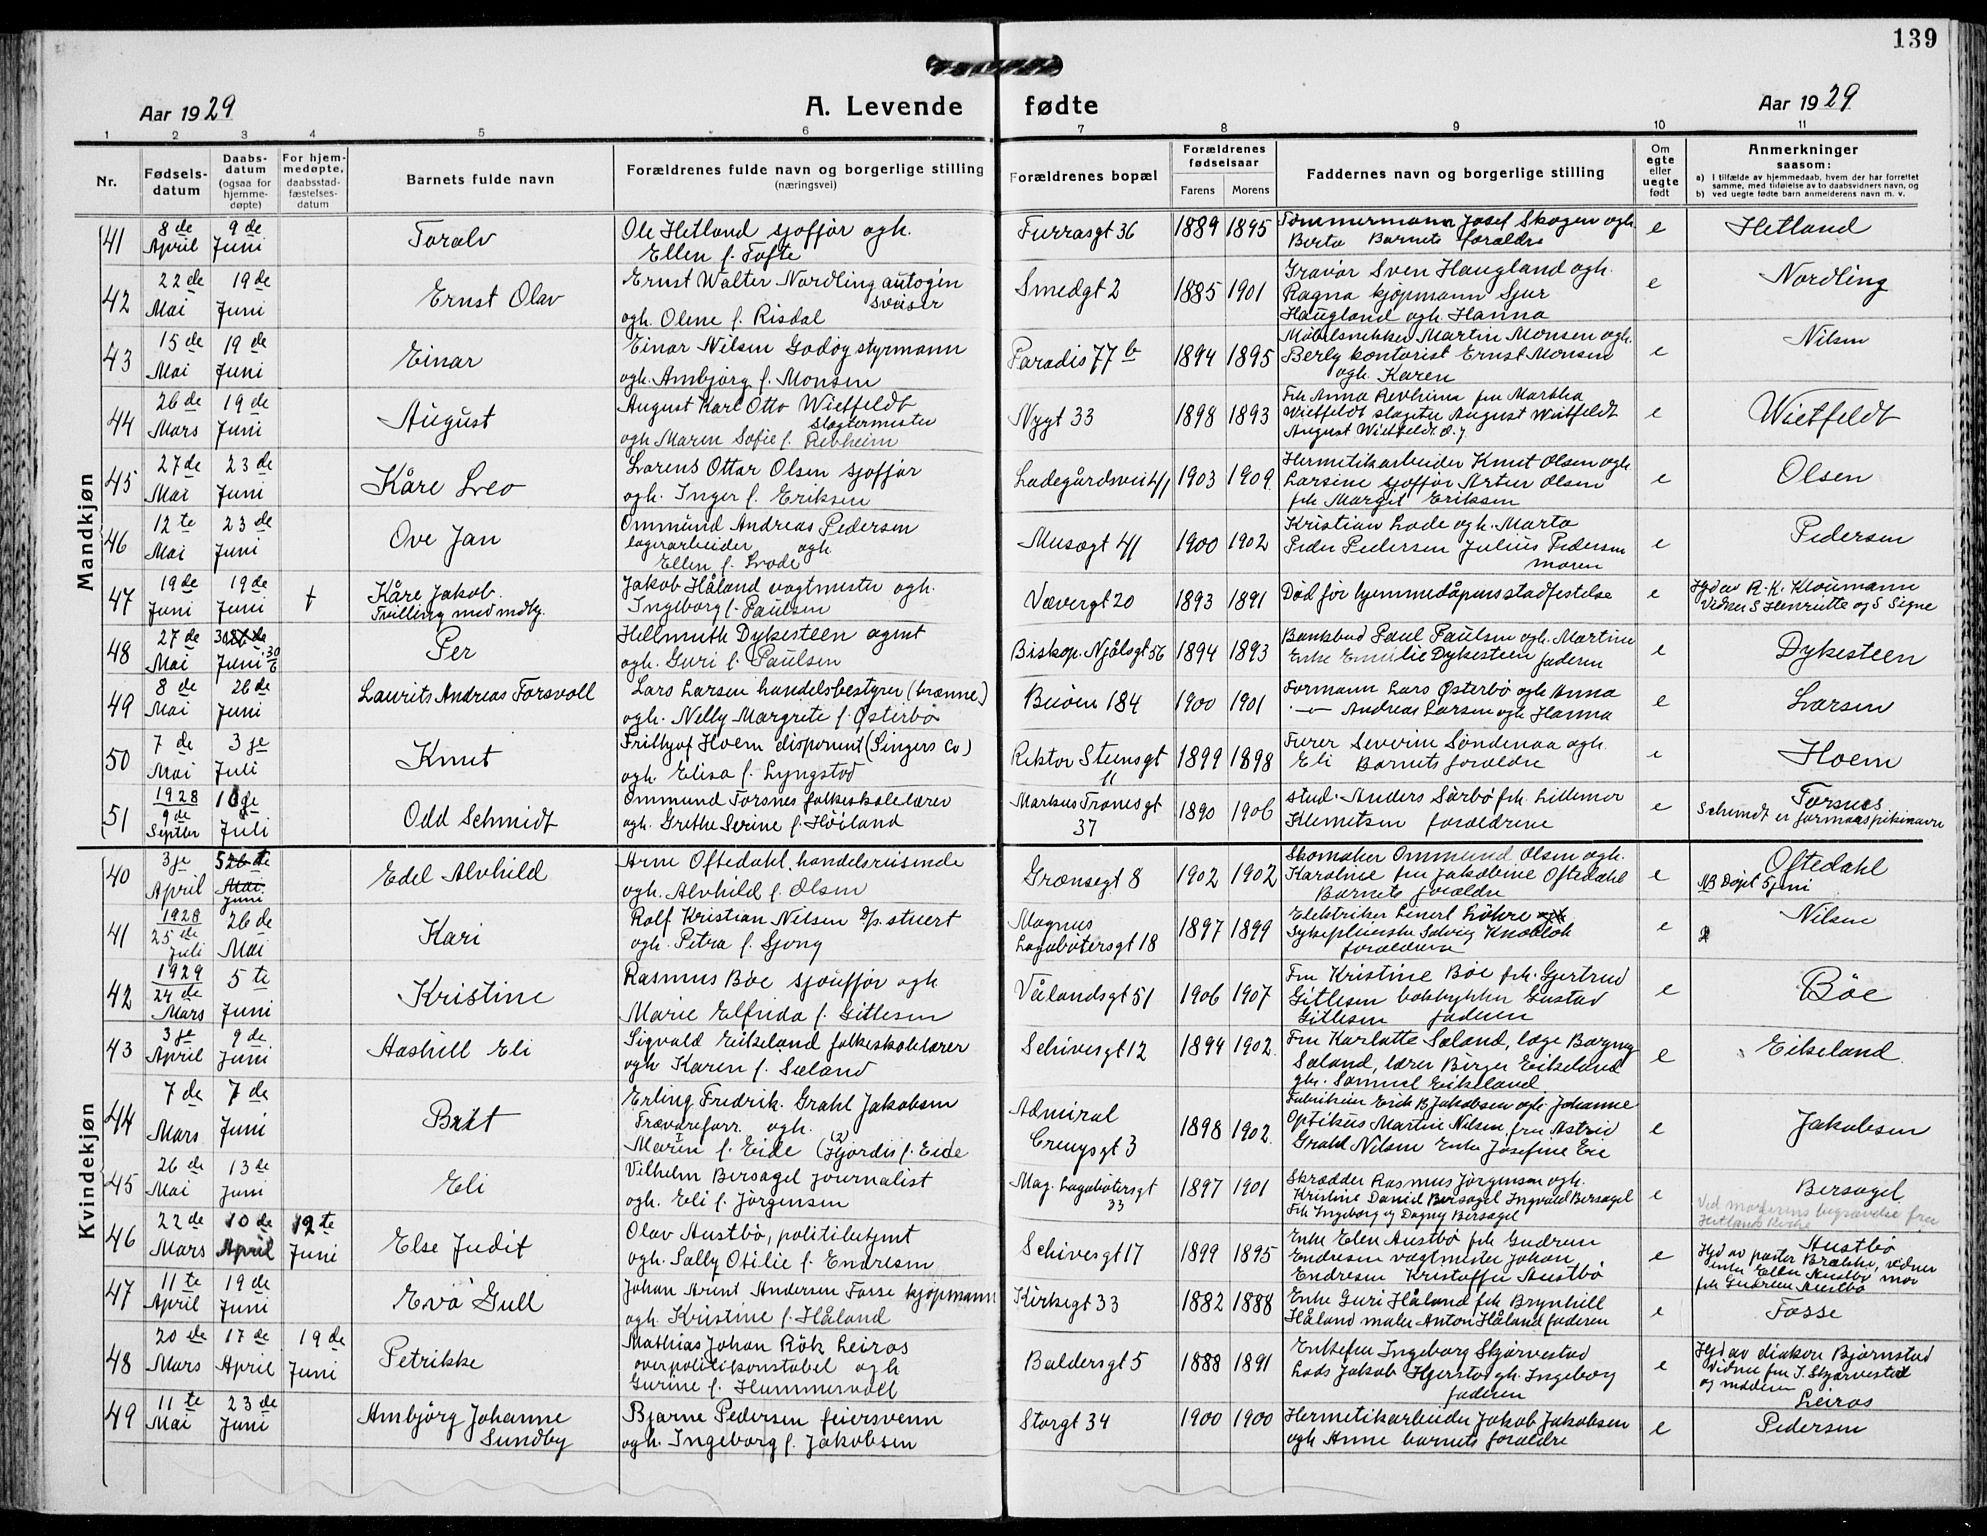 139
Aar 1929 A. Levende fødte Aar 1929
1 2 3 4 5 6 7 8 9 10 11
Nr. Fødselsdatum Daabsdatum (ogsaa for hjemmedøpte) For hjemmedøpte, daabsstadfæstelsesdatum Barnets fulde navn Forældrenes fulde navn og borgerlige stilling (næringsvei) Forældrenes bopæl Forældrenes fødselsaar Farens Morens Faddernes navn og borgerlige stilling Om egte eller uegte født Anmerkninger saasom:
a) I tilfælde av hjemmedaab, hvem der har forrettet samme, med tilføielse av to daabsvidners navn, og
b) ved uegte fødte barn anmelderens navn m. v.
Mandkjøn
41 8de April 9de Juni Toralv Ole Hetland sjofför ogh. Ellen f. Tofte Furrasgt 36 1889 1895 Tømmermann Josef Skogen ogh. Berta Barnets forældre e Hetland
42 22de Mai 19de Juni Ernst Olav Ernst Walter Nordling autogin sveiser ogh. Olene f. Risdal Smedgt 2 1885 1901 Gravör Sven Haugland ogh. Ragna kjøpmann Sjur Haugland ogh. Hanna e Nordling
43 15de Mai 19de Juni Einar Einar Nilsen Godøy styrmann ogh. Ambjørg f. Monsen Paradis 77b 1894 1895 Møbelsnekker Martin Monsen ogh. Berly kontorist Ernst Monsen ogh. Karen e Nilsen
44 26de Mars 19de Juni August August Karl Otto Wietfeldt Slagtermester ogh Maren Sofie f. Revheim Nygt 33 1898 1893 Frk Anna Revheim fru Martha Wietfeldt slagter August Wietfeldt August Wietfeldt d. y. e Wietfeldt
45 27de Mai 23de Juni Kåre Leo Lorens Ottar Olsen sjofför ogh. Inger f. Eriksen Ladegårdsvei 41 1903 1909 Hermetikarbeider Knut Olsen ogh. Larsine sjofför Artur Olsen frk Margit Eriksen e Olsen
46 12te Mai 23de Juni Ove Jan Ommund Andreas Pedersen lagerarbeider ogh Ellen f. Lode Musægt 41 1900 1902 Kristian Lode ogh. Marta Peder Pedersen Julius Pedersen moren e Pedersen
47 19de Juni 19de Juni † Kåre Jakob. Tvilling med mdby. Jakob Håland vagtmester ogh. Ingeborg f. Paulsen Vævergt 20 1893 1891 Död för hjemmedåpens stadfestelse e Hjd av R. K. Kloumann Vidner S Henriette og S Signe
48 27de Mai Juni 30/6 Per Hellmuth Dykesteen agent ogh. Guri f. Paulsen Biskop. Njålsgt 56 1894 1893 Bankbud Paul Paulsen ogh. Martine Enke Emilie Dykesteen faderen e Dykesteen
49 8de Mai 26de Juni Laurits Andreas Forsvoll Lars Larsen handelsbestyrer (brænne) ogh. Nelly Margrete f. Østerbö Buöen 184 1900 1901 Formann Lars Østerbö ogh Anna - " - Andreas Larsen ogh Hanna e Larsen
50 7de Mai 3je Juli Knut Frithjof Hoem disponent (Singers Co) ogh. Elisa f. Lyngstad Rektor Steensgt 11 1899 1898 Furer Severin Söndenaa ogh. Eli Barnets forældre e Hoem
51 1928 9de Septbr 10de Juli Odd Schmidt Ommund Forsnes folkeskolelærer ogh. Grethe Serine f. Höiland Markus Tranesgt 37 1890 1906 stud. Anders Sörbö frk. Lillemor Klemetsen forældrene e Forsnes Schmidt er
Kvindekjøn
40 3je April 5 26de Mai. Juni Edel Alvhild Arne Oftedahl, handelsreisende ogh. Alvhild f. Olsen Grænsegt 8 1902 1902 Skomaker Ommund Olsen ogh. Karoline fru Jakobine Oftedahl Barnets forældre e Oftedahl NB Döpt 5 juni
41 1928 25de Juli 26de Mai Kari Rolf Kristian Nilsen stuert ogh. Petra f. Sjong Magnus Lagabøtersgt 18 1897 1899 Elektriker Einert Löhre Sykepleierske Solvig forældrene e Nilsen
42 1929 24de Mars 5te Juni Kristine Rasmus Böe sjouffør ogh Marie Elfrida f. Gitlesen Vålandsgt 51 1906 1907 Fru Kristine Böe frk. Gjertrud Gitlesen boktrykker Gustav Gitlesen faderen e Böe
43 3je April 9de Juni Aashill Eli Sigvald Eikeland folkeskolelærer ogh Karen f. Sæland Schivesgt 12 1894 1902 Fru Karlotte Sæland, læge Borgny Sæland, lærer Birger Eikeland gbr. Samuel Eikeland e Eikeland
44 7de Mars 7de Juni Brit Erling Fredrik. Grahl Jakobsen Trævareforr. ogh. Maren f. Eide (2) (Hjördis f. Eide Admiral Cruysgt 3 1898 1902 Fabrikeier Erik B Jakobsen ogh. Johanne Optikus Martin Nilsen fru Astrid Grahl Nilsen Enke Josefine Eie e Jakobsen
45 26de Mai 13de Juni Eli Vilhelm Bersagel journalist ogh. Eli f. Jörgensen Mag. Lagabøtersgt 33 1897 1901 Skrædder Rasmus Jörgensen ogh. Kristine Daniel Bersagel Ingvald Bersagel Frk Ingeborg og Dagny Bersagel e Bersagel Ved moderens begravelse fra Hetland Kirke
46 22de Mars 10de April 12te Juni Else Judit Olav Austbö, politibetjent ogh. Sally Otilie f. Endresen Schivesgt 17 1899 1895 Enke Elen Austbö frk Gudrun Endresen vagtmester Johan Endresen Kristoffer Austbö e Austbö Hjd av pastor Brække, vidner enke Ellen Austbö mor frk Gudrun Austbö
47 11te April 19de Juni Eva Gull Johan Arent Andersen Fosse kjøpmann ogh. Kristine f. Håland Kirkegt 33 1882 1888 Enke Guri Håland frk Brynhill Håland maler Anton Håland faderen e Fosse
48 20de Mars 17de April 19de Juni Petrikke Mathias Johan Rök Leiros overpolitikonstabel ogh Gurine f. Hummervoll Baldersgt 5 1888 1891 Enkefru Ingeborg Skjørvestad Lods Jakob Hjerstv ogh. Ingeborg faderen e Hjd av diakon Björnstad vidner fru I. Skjørvestad og moderen Leiros
49 11te Mai 23de Juni Ambjörg Johanne Sundby Bjarne Pedersen feiersvenn ogh. Ingeborg f. Jakobsen Storgt 34 1900 1900 Hermetikarbeider Jakob Jakobsen ogh Anne barnets forældre e Pedersen